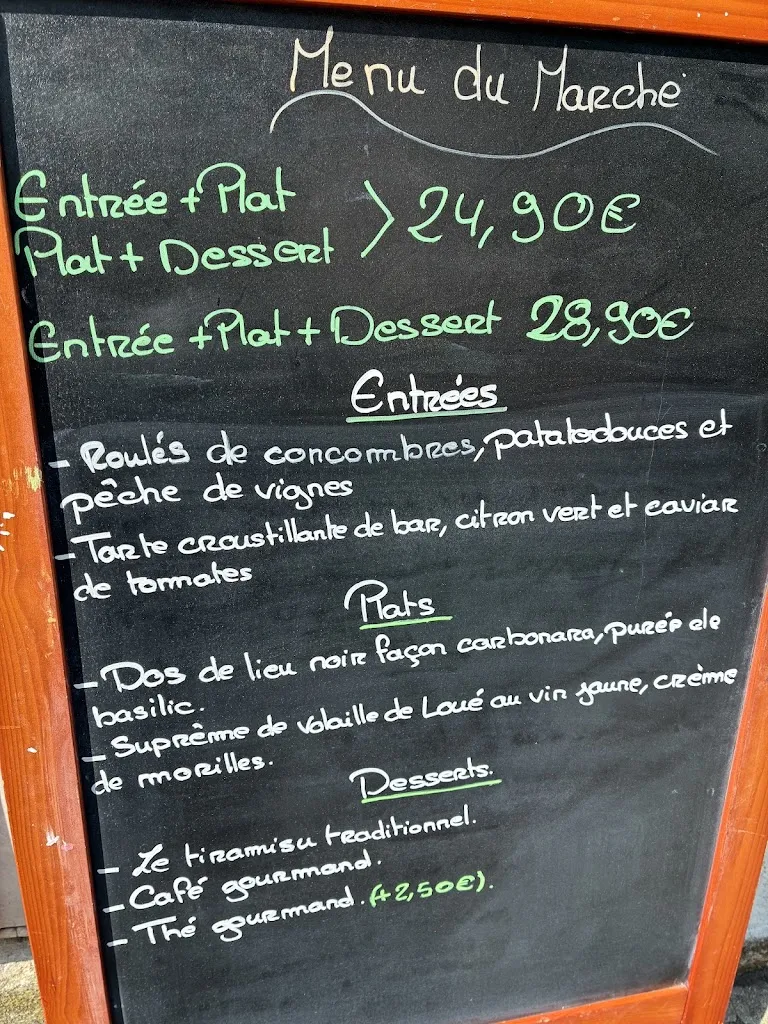 Menu du Marché
Entrée + Plat
Plat + Dessert > 24,90€
Entrée + Plat + Dessert 28,90€
Entrées
- Roulés de concombres, patatedouces et
pêche de vignes
- Tarte croustillante de bar, citron vert et caviar
de tomates
Plats
- Dos de lieu noir façon carbonara, purée de
basilic.
- Suprême de volaille de Loué au vin jaune, crème
de morilles.
Desserts.
- Le tiramisu traditionnel.
- Café gourmand.
- Thé gourmand. (+2,50€).